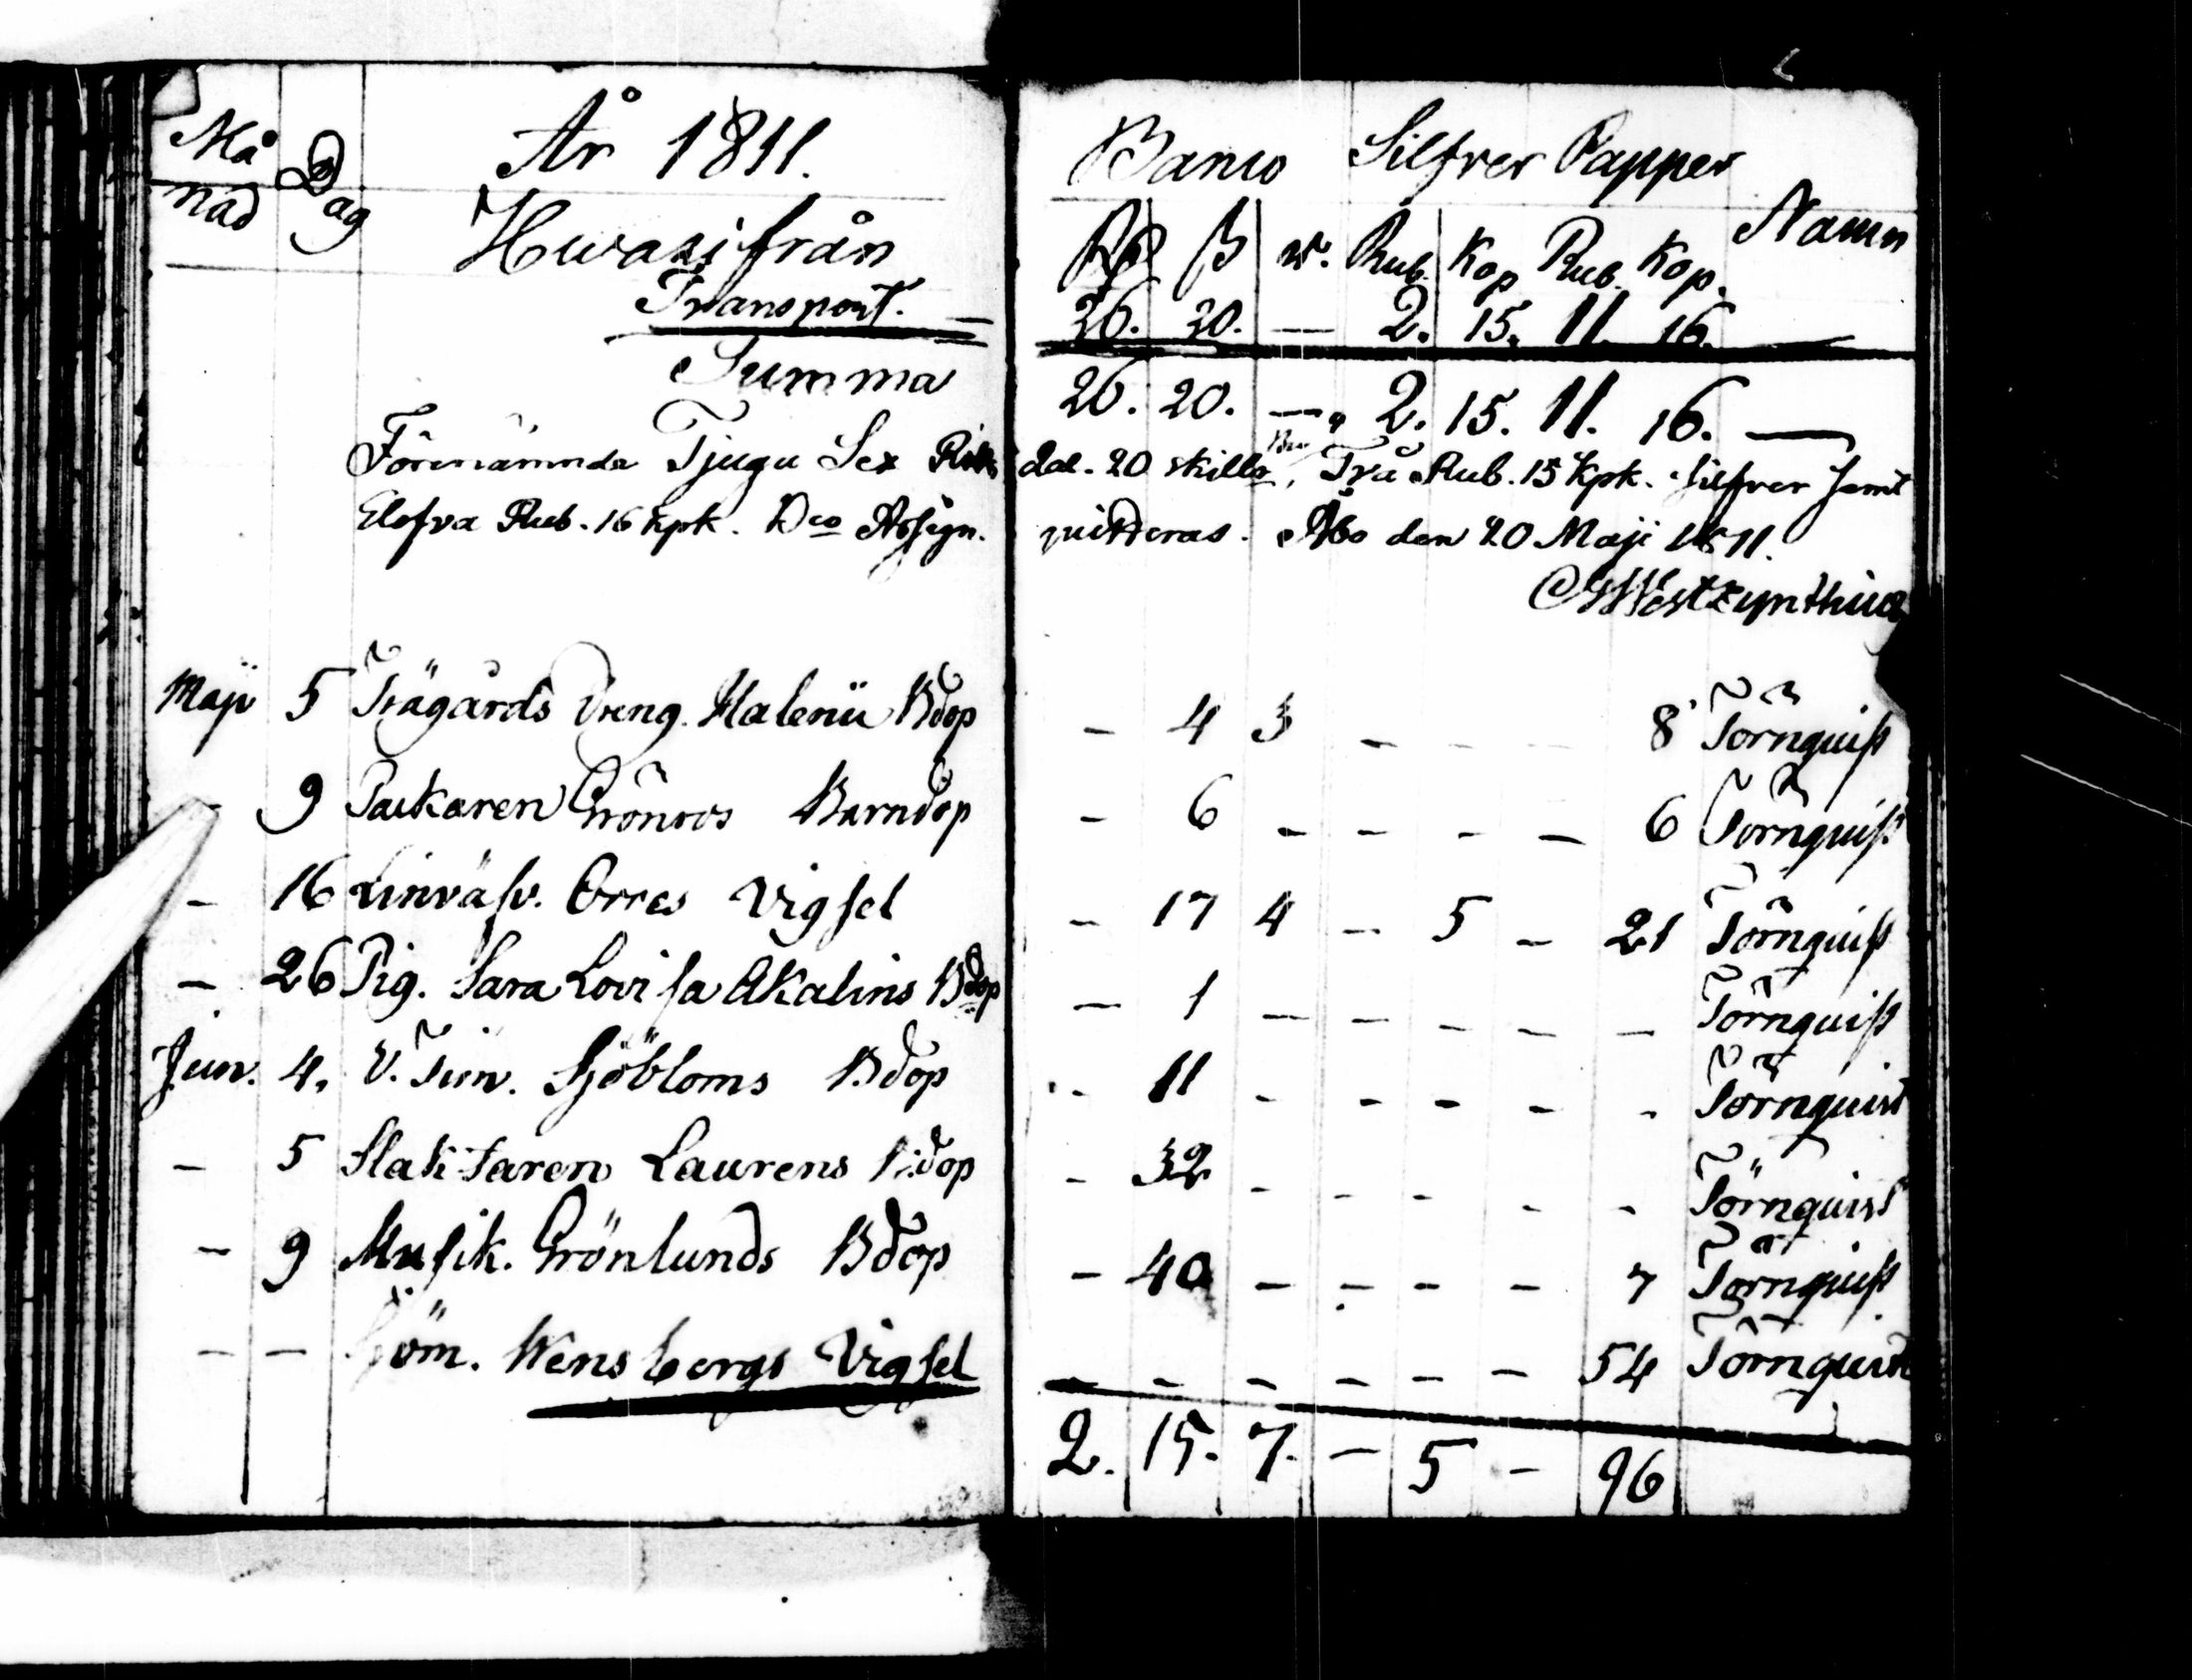 Må nad Dag År 1811. Banco Silfver Papper Namn
Hwarifrån Rd ß rst. Rub. Kop Rub. Kop.
Transport. — 26. 20. — 2. 15. 11. 16. —
Summa 26. 20. — 2. 15. 11. 16. —
Förenämnda Tjugu Sex Riks dal. 20 skillr Bco, Två Rub. 15 Kpk. Silfver samt
Elefva Rub. 16 Kpk. Dco Assign. quitteras. Åbo den 20 Maji 1811.
Maji 5 Trägårds Dreng. Malenii Bdop - 4 3 - - - 8 Törnquist
- 9 Packaren Grönroos Barndop - 6 - - - - 6 Törnquist
- 16 Linväfv. Orres Vigsel - 17 4 - 5 - 21 Törnquist
- 26 Pig. Sara Lovisa Akalins Bdop - 1 - - - - - Törnquist
Jun. 4. Sjöbloms Bdop - 11 - - - - - Törnquist
- 5 Slaktaren Laurens Bdop - 32 - - - - - Törnquist
- 9 Musik. Grönlunds Bdop - 40 - - - - 7 Törnquist
- - Wensbergs Vigsel - - - - - - 54 Törnquist
2. 15. 7. - 5 - 96